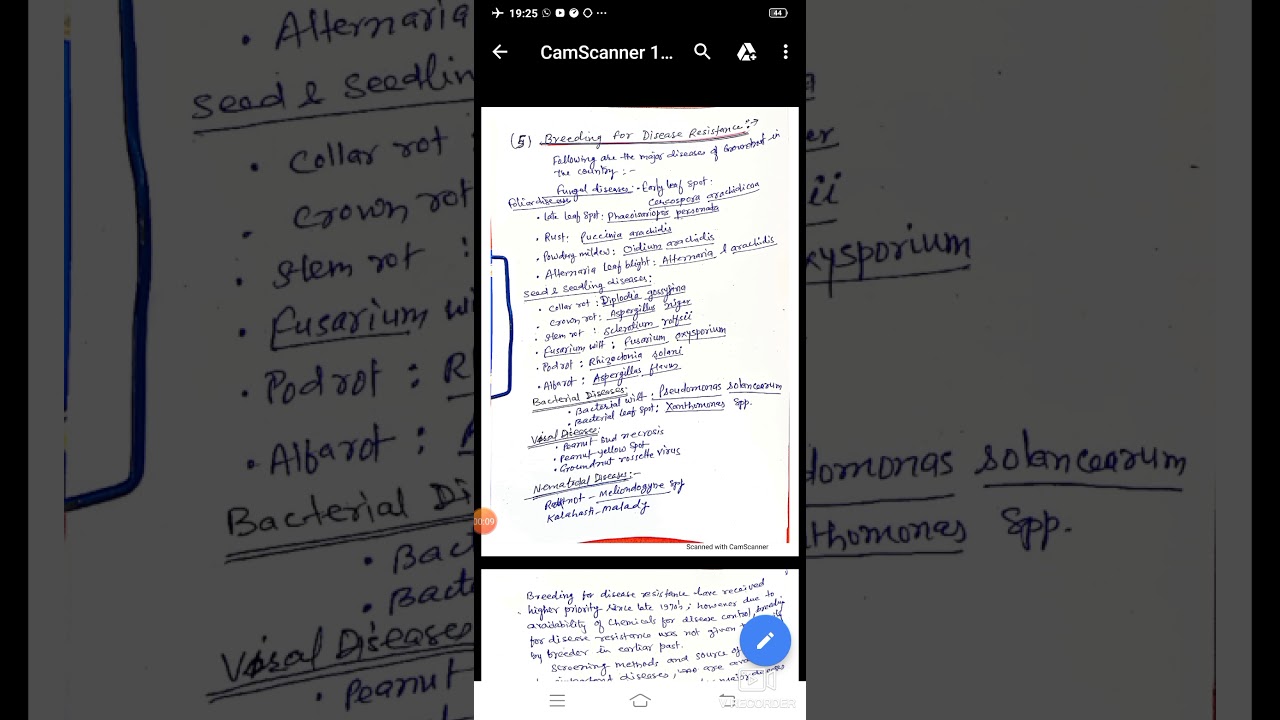 19:25
44
CamScanner 1...
(5) Breeding for Disease Resistance :→
Following are the major diseases of Groundnut in
the country : -
Fungal diseases: - Early leaf spot:
Foliar diseases
Cercospora arachidicoa
• Late leaf spot: Phaeoisariopsis personata
• Rust: Puccinia arachidis
• Powdery mildew: Oidium arachidis
• Alternaria Leaf blight: Alternaria arachidis
Seed & Seedling diseases:
• Collar rot: Diplodia gossypina
• Crown rot: Aspergillus niger
• Stem rot : Sclerotium rolfsii
• Fusarium wilt : Fusarium oxysporium
• Pod rot : Rhizoctonia solani
• Alfarot : Aspergillus flavus
Bacterial Diseases:
• Bacterial wilt: Pseudomonas solancearum
• Bacterial leaf spot: Xanthomonas spp.
Viral Diseases:
• Peanut bud necrosis
• Peanut yellow spot
• Groundnut rosette virus
Nematodal Diseases:-
- Meliondogyne spp
Kalahasti - malady
Scanned with CamScanner
Breeding for disease resistance have received
higher priority since late 1970's; however due to
availability of chemicals for disease control, breeding
for disease resistance was not given
by breeder in earlier past.
Screening methods and source of
diseases, are
major diseases
00:09
RECORDER
• Alternaria
Seed & Seedlin
• Collar rot :
• Crown rot :
• Stem rot :
• Fusarium wi
• Pod rot : R
• Alfarot : A
Bacterial Di
• Bact
• Bacte
Viral Diseases
• Peanut
er
ii
xysporium
domonas solancearum
thomonas spp.